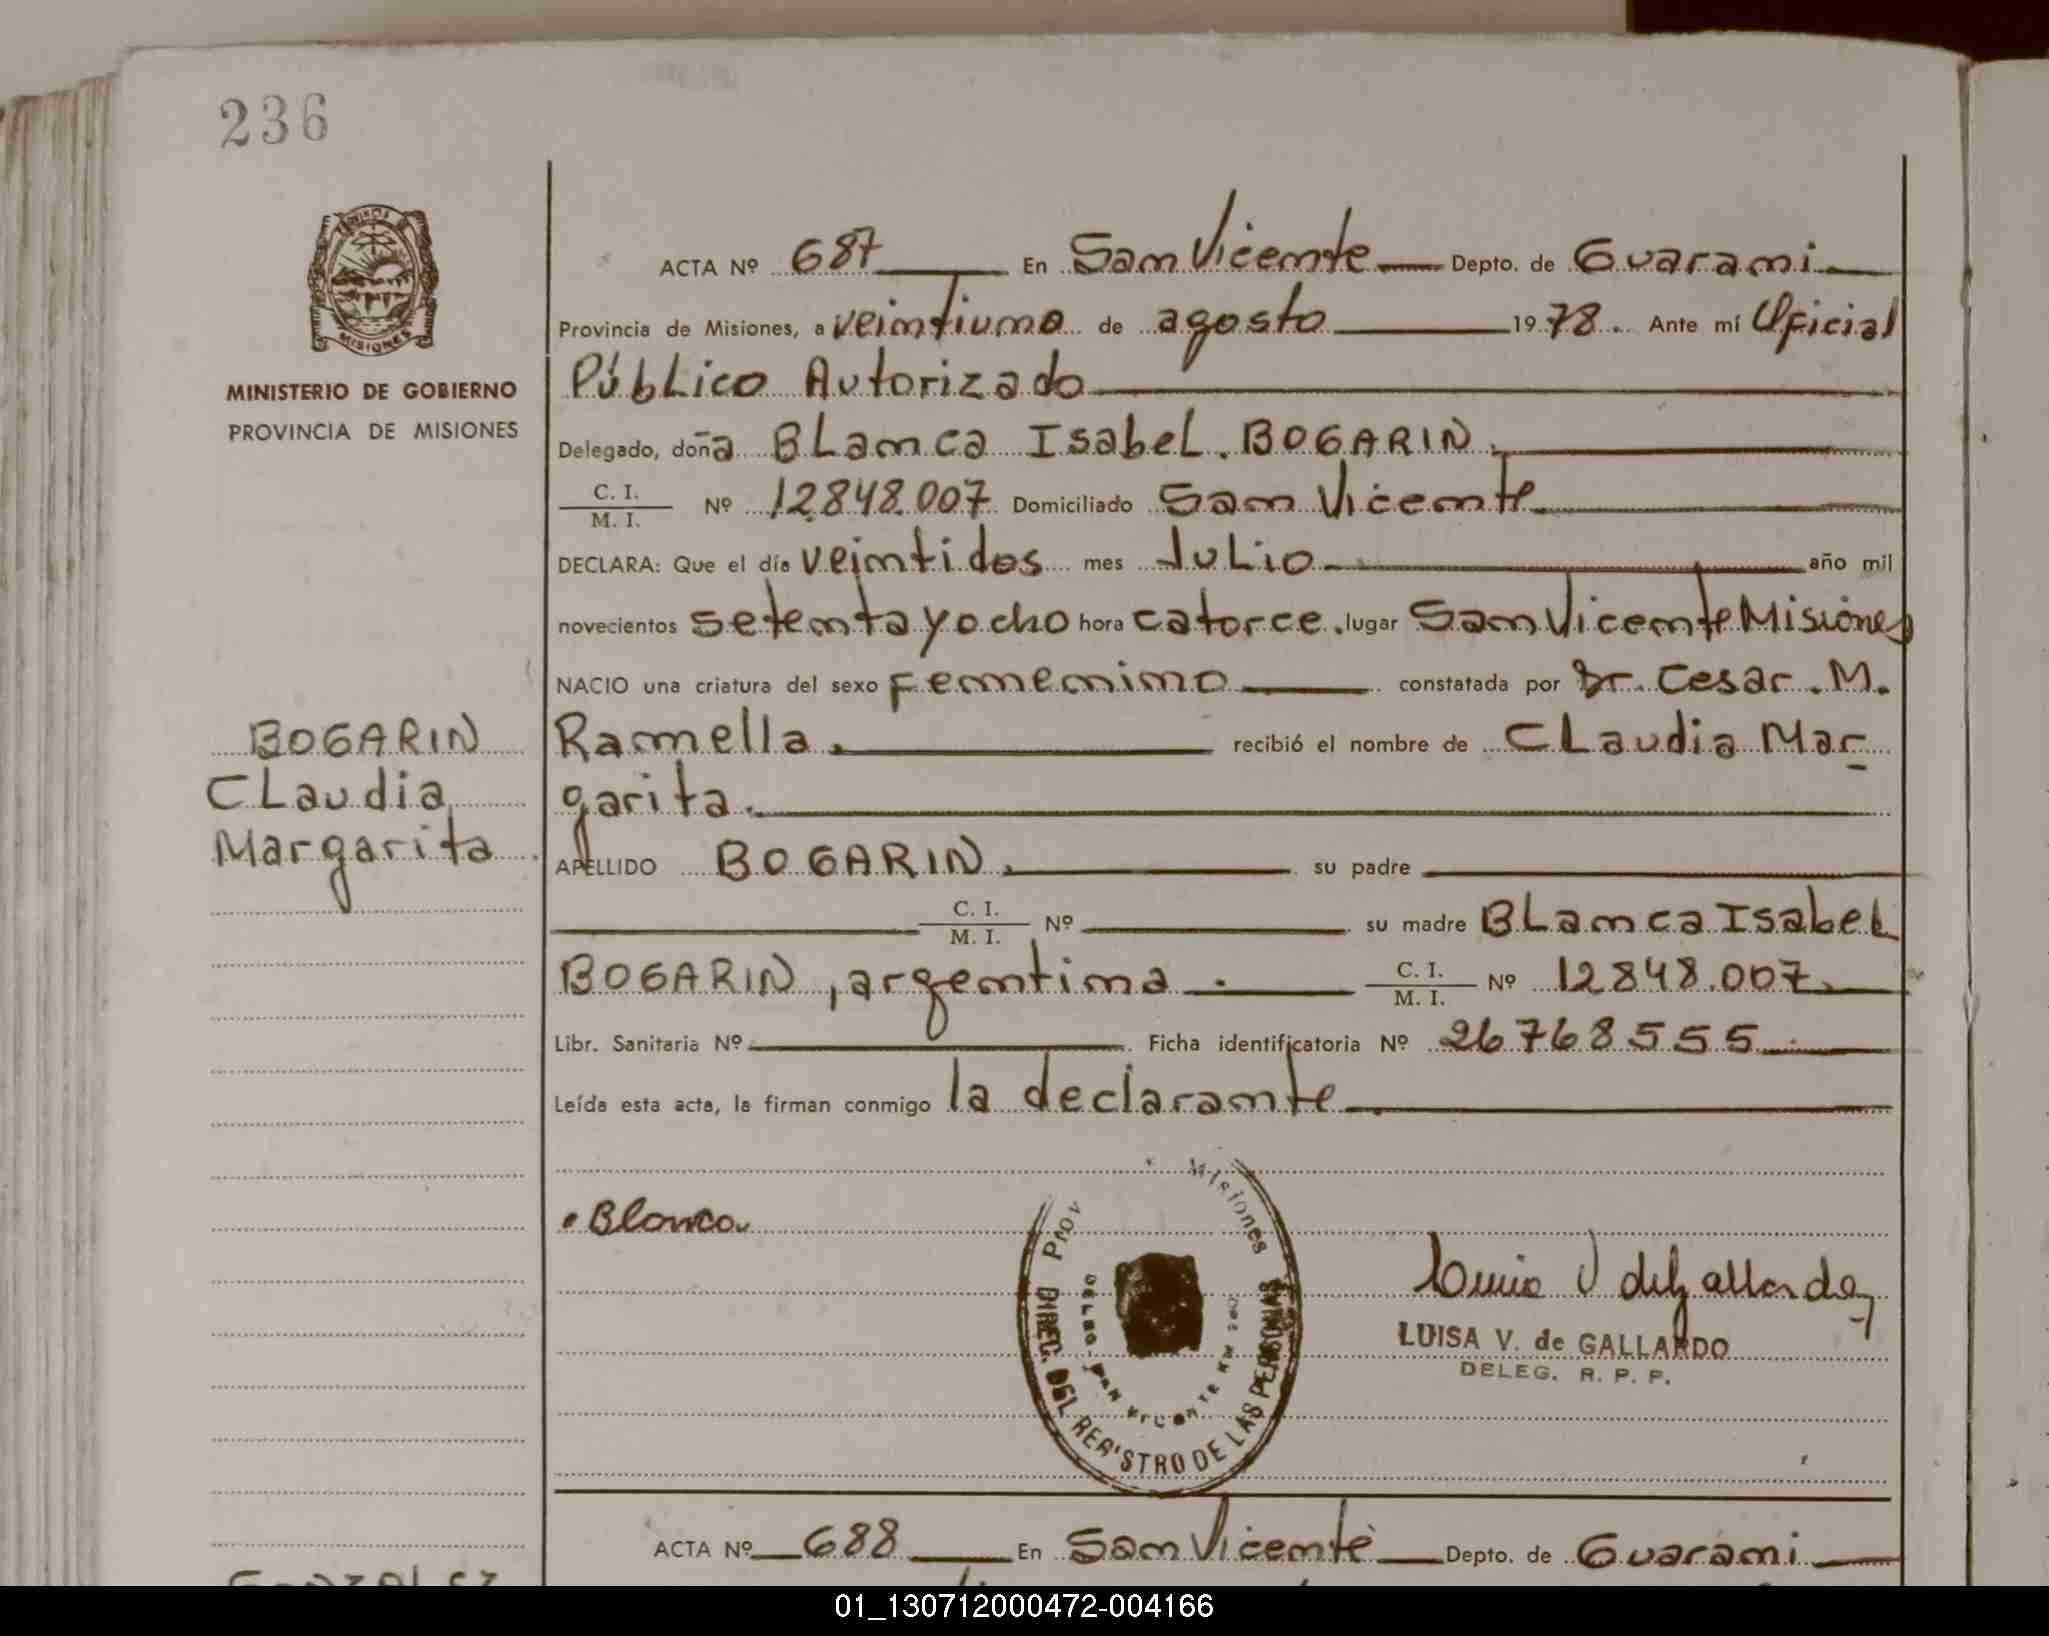 236
ACTA Nº 687 En San Vicente Depto. de Guaraní
Provincia de Misiones, a veintiuno de agosto 1978. Ante mí Oficial
Público Autorizado
Delegado, doña Blanca Isabel BOGARIN.
C. I.
M. I. Nº 12.848.007 Domiciliado San Vicente
DECLARA: Que el día veintidos mes Julio año mil
novecientos setenta y ocho hora catorce. lugar San Vicente Misiones
NACIO una criatura del sexo femenino constatada por Dr. Cesar M.
Ramella. recibió el nombre de Claudia Mar
garita.
APELLIDO BOGARIN. su padre
C. I.
M. I. Nº su madre Blanca Isabel
BOGARIN, argentina. C. I.
M. I. Nº 12848.007.
Libr. Sanitaria Nº Ficha identificatoria Nº 26768555
Leída esta acta, la firman conmigo la declarante
MISIONES
MINISTERIO DE GOBIERNO
PROVINCIA DE MISIONES
BOGARIN
Claudia
Margarita
Blanca
Prov Misiones
DIREC. DEL REGISTRO DE LAS PERSONAS
Luisa V de Gallardo
LUISA V. de GALLARDO
DELEG. R. P. P.
ACTA Nº 688 En San Vicente Depto. de Guaraní
01_130712000472-004166